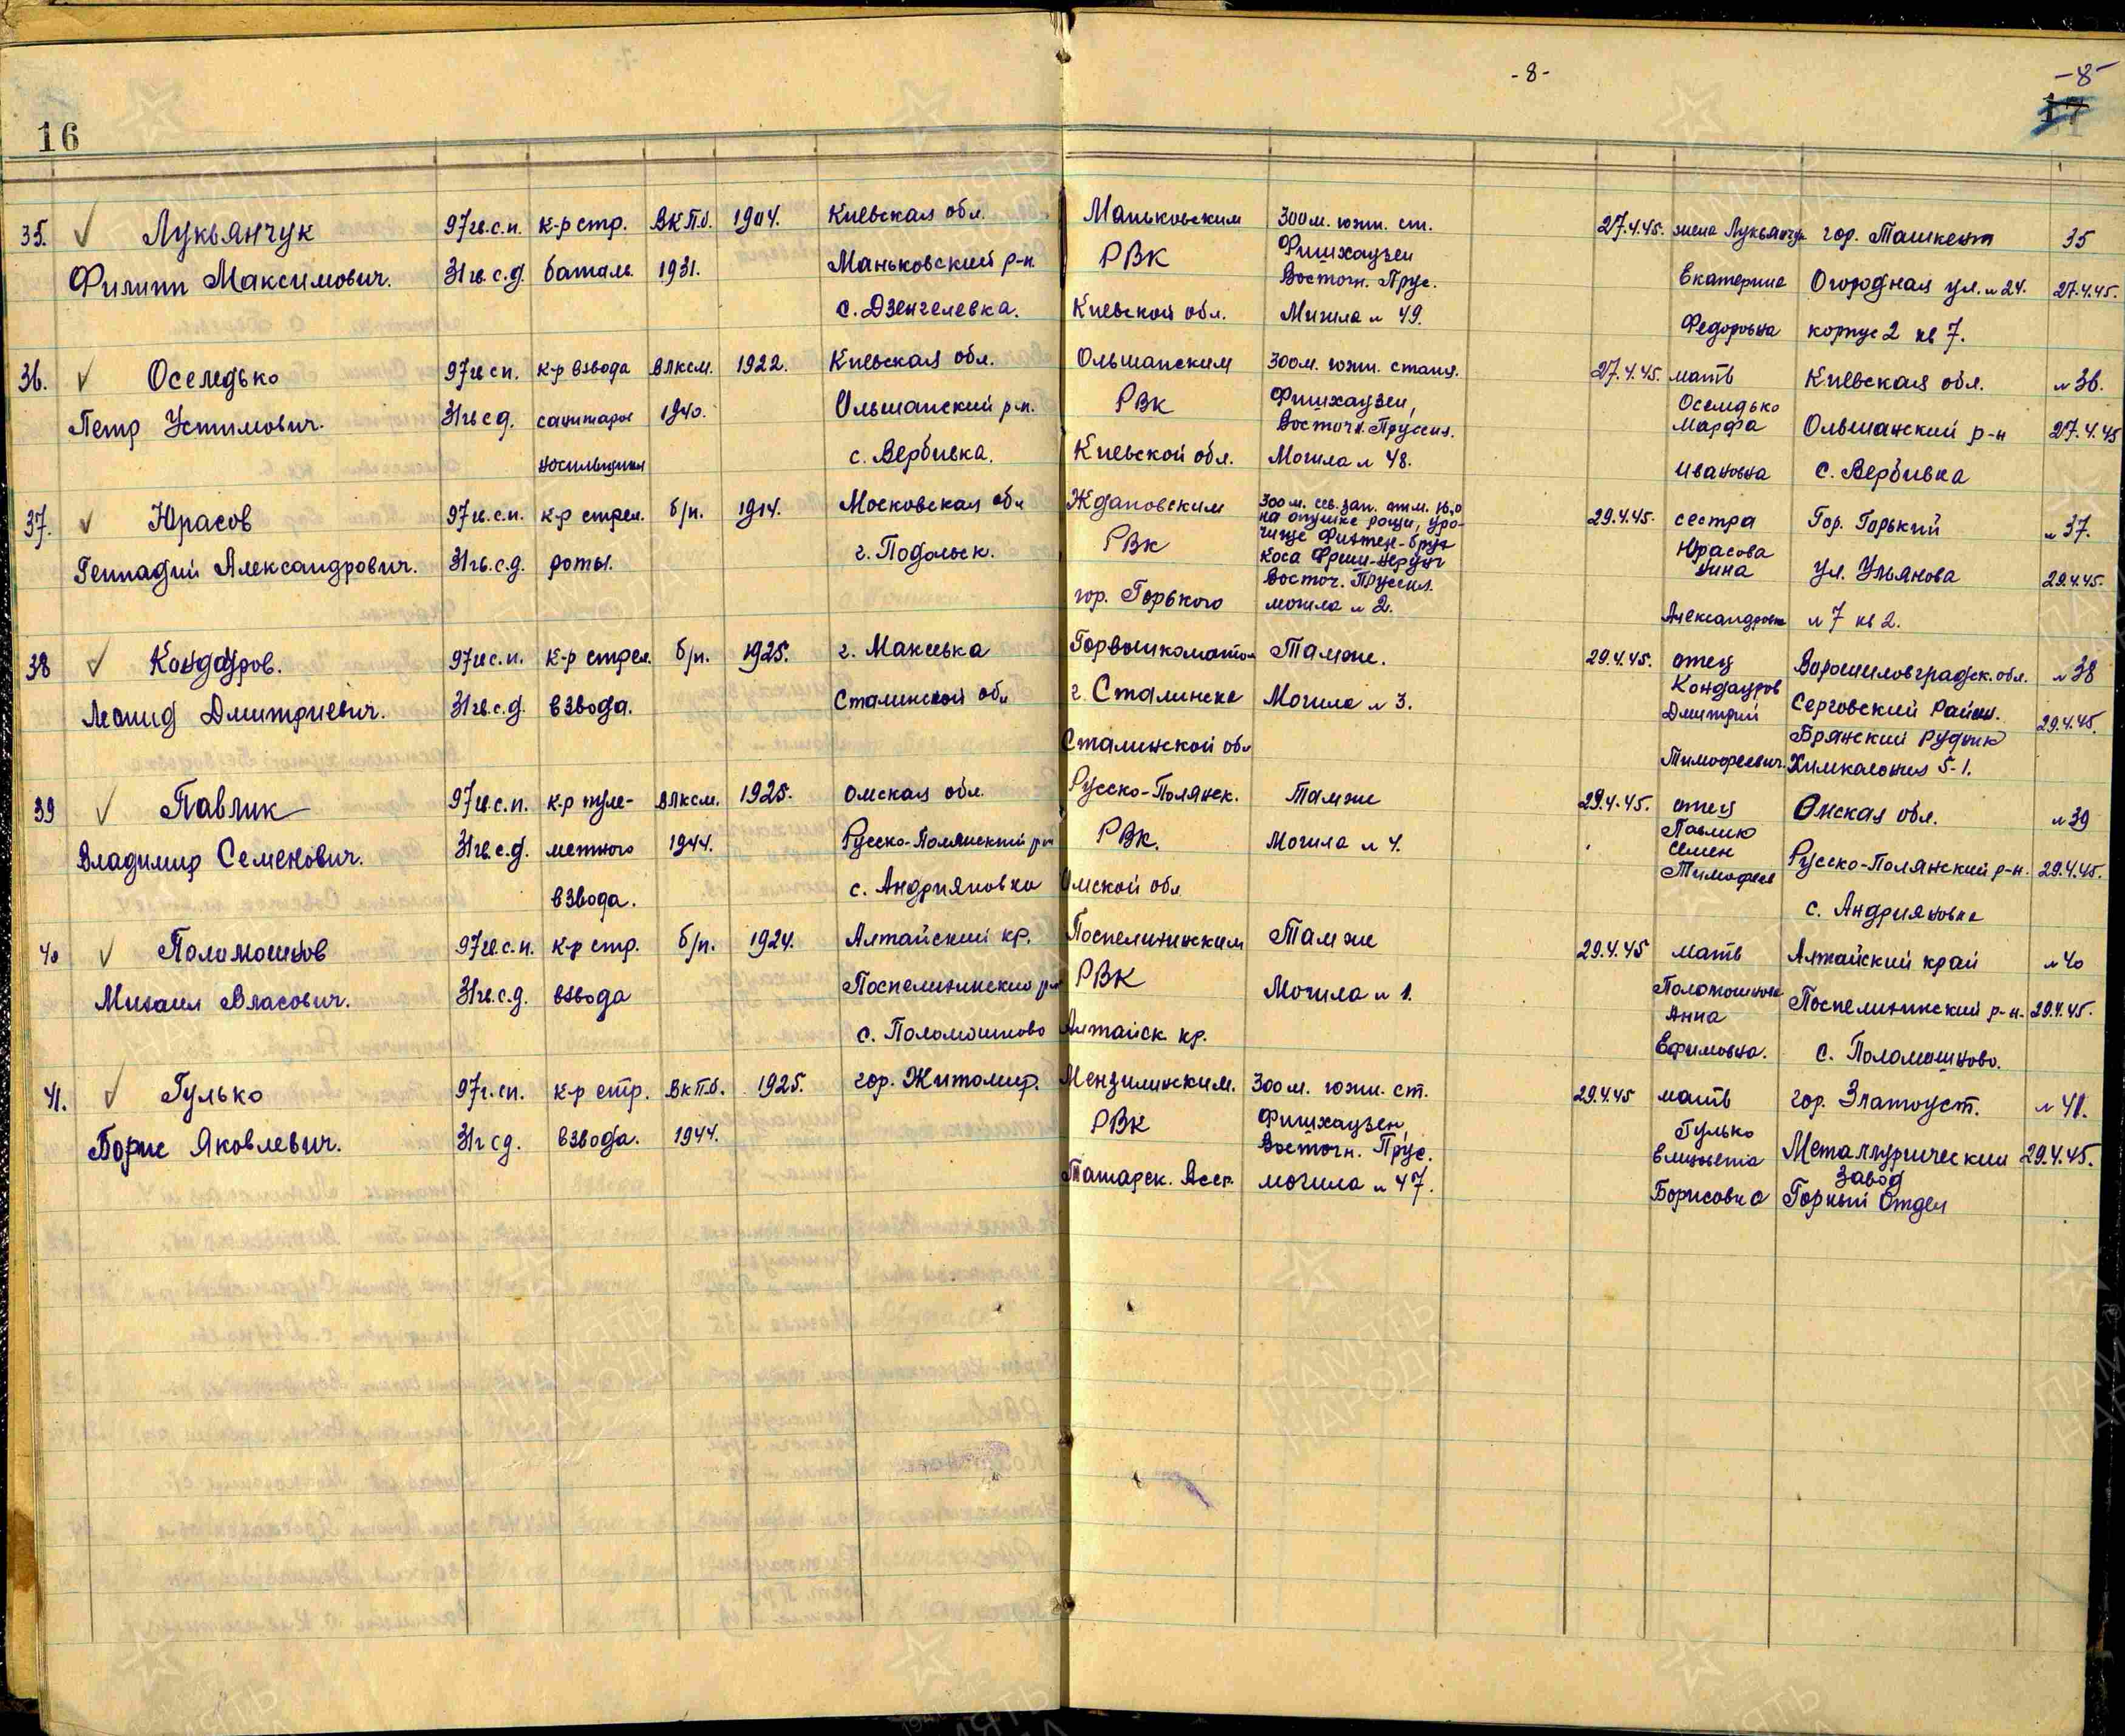 -8-
-8-
16
17
35. Лукьянчук 97 гв. с.п. к-р стр. ВКПб. 1904. Киевская обл. Маньковским 300 м. южн. ст. 27.4.45. жена Лукьянчук гор. Ташкент 35
Филипп Максимович. 31 гв. с.д. баталь. 1931. Маньковский р-н. РВК Фишхаузен Екатерина Огородная ул. № 24. 27.4.45.
Восточн. Прус.
с. Дзенгелевка. Киевской обл. Могила № 49. Федоровна корпус 2 кв 7.
36. Оселедько 97 гв сп. к-р взвода ВЛКСМ. 1922. Киевская обл. Ольшанским 300 м. южн. станц. 27.4.45. мать Киевская обл. № 36.
Петр Устимович. 31 гв сд. санитаров 1940. Ольшанский р-н. РВК Фишхаузен, Оселедько
Восточн. Пруссия. Марфа Ольшанский р-н 27.4.45
носильщиков с. Вербивка. Киевской обл. Могила № 48. Ивановна с. Вербивка
37. Юрасов 97 гв. с.п. к-р стрел. б/п. 1914. Московская обл Ждановским 300 м. сев. зап. отм. 16,0 29.4.45. сестра Гор. Горький № 37.
на опушке рощи, уро-
Геннадий Александрович. 31 гв. с.д. роты. г. Подольск. РВК чище Коса Фриш-Нерунг Юрасова Нина ул. Ульянова 29.4.45.
Восточ. Пруссия.
гор. Горького могила № 2. Александровна № 7 кв 2.
38 Кондауров. 97 гв с.п. к-р стрел. б/п. 1925. г. Макеевка Горвоенкоматом Там же. 29.4.45. отец Ворошиловградск. обл. № 38
Леонид Дмитриевич. 31 гв. с.д. взвода. Сталинской обл г. Сталинска Могила № 3. Кондауров Дмитрий Серговский Район. 29.4.45.
Сталинской обл Брянский Рудник
Тимофеевич. Химкалония 5-1.
39 Павлик 97 гв. с.п. к-р пуле- ВЛКСМ. 1925. Омская обл. Русско-Полянск. Там же 29.4.45. отец Омская обл. № 39
Владимир Семенович. 31 гв. с.д. метного 1944. Русско-Полянский р-н РВК. Могила № 4. Павлик Семен Русско-Полянский р-н. 29.4.45.
взвода. с. Андрияновка Омской обл Тимофеев с. Андрияновка
40 Поломошнов 97 гв. с.п. к-р стр. б/п. 1924. Алтайский кр. Поспелихинским Там же 29.4.45 мать Алтайский край № 40
Михаил Власович. 31 гв. с.д. взвода Поспелихинский р-н РВК Могила № 1. Поломошнова Анна Поспелихинский р-н. 29.4.45.
с. Поломошново Алтайск. кр. Ефимовна. с. Поломошново.
41. Гулько 97 г. сп. к-р стр. ВКПб. 1925. гор. Житомир. Мензилинским. 300 м. южн. ст. 29.4.45 мать гор. Златоуст. № 41.
Борис Яковлевич. 31 г сд. взвода. 1944. РВК Фишхаузен, Гулько
Восточн. Прус. Елизовета Металлургический 29.4.45.
Завод
Татарск. Асср. могила № 47. Борисовна Горный Отдел